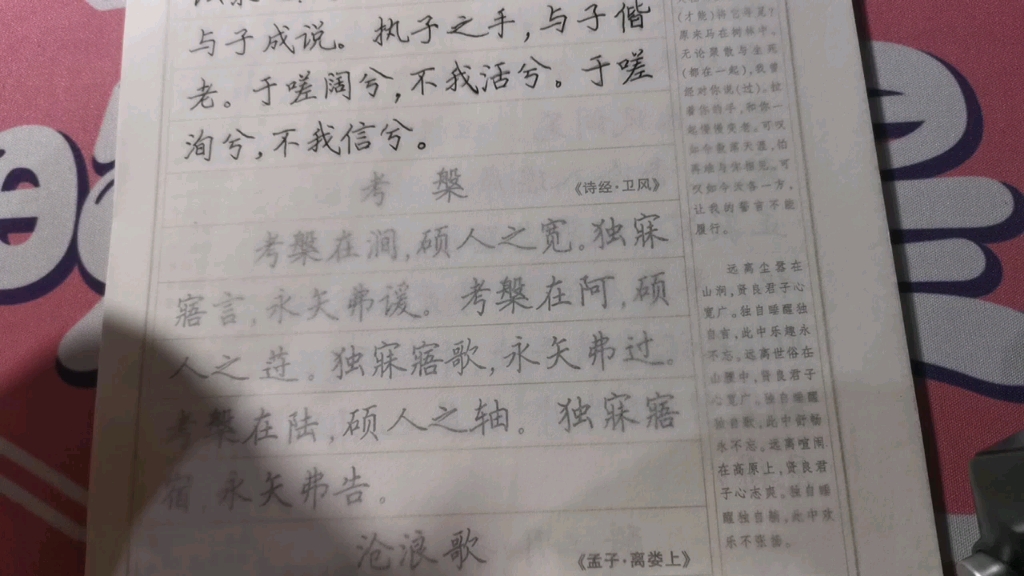 与子成说。执子之手,与子偕
老。于嗟阔兮,不我活兮。于嗟
洵兮,不我信兮。
考 槃
《诗经·卫风》
考槃在涧,硕人之宽。独寐
寤言,永矢弗谖。考槃在阿,硕
人之薖。独寐寤歌,永矢弗过。
考槃在陆,硕人之轴。独寐寤
宿,永矢弗告。
沧浪歌
《孟子·离娄上》
(才能)将它寻觅?
原来马在树林中。
无论聚散与生死
(都在一起),我曾
经对你说(过),拉
着你的手,和你一
起慢慢变老。可叹
如今散落天涯,怕
可
叹如今天各一方,
让我的誓言不能
履行。
远离尘嚣在
山涧,贤良君子心
宽广。独自睡醒独
自言,此中乐趣永
不忘。远离世俗在
山腰中,贤良君子
心宽广。独自睡醒
独自歌,此中舒畅
永不忘。远离喧闹
在高原上,贤良君
子心志爽。独自睡
醒独自躺,此中欢
乐不张扬。